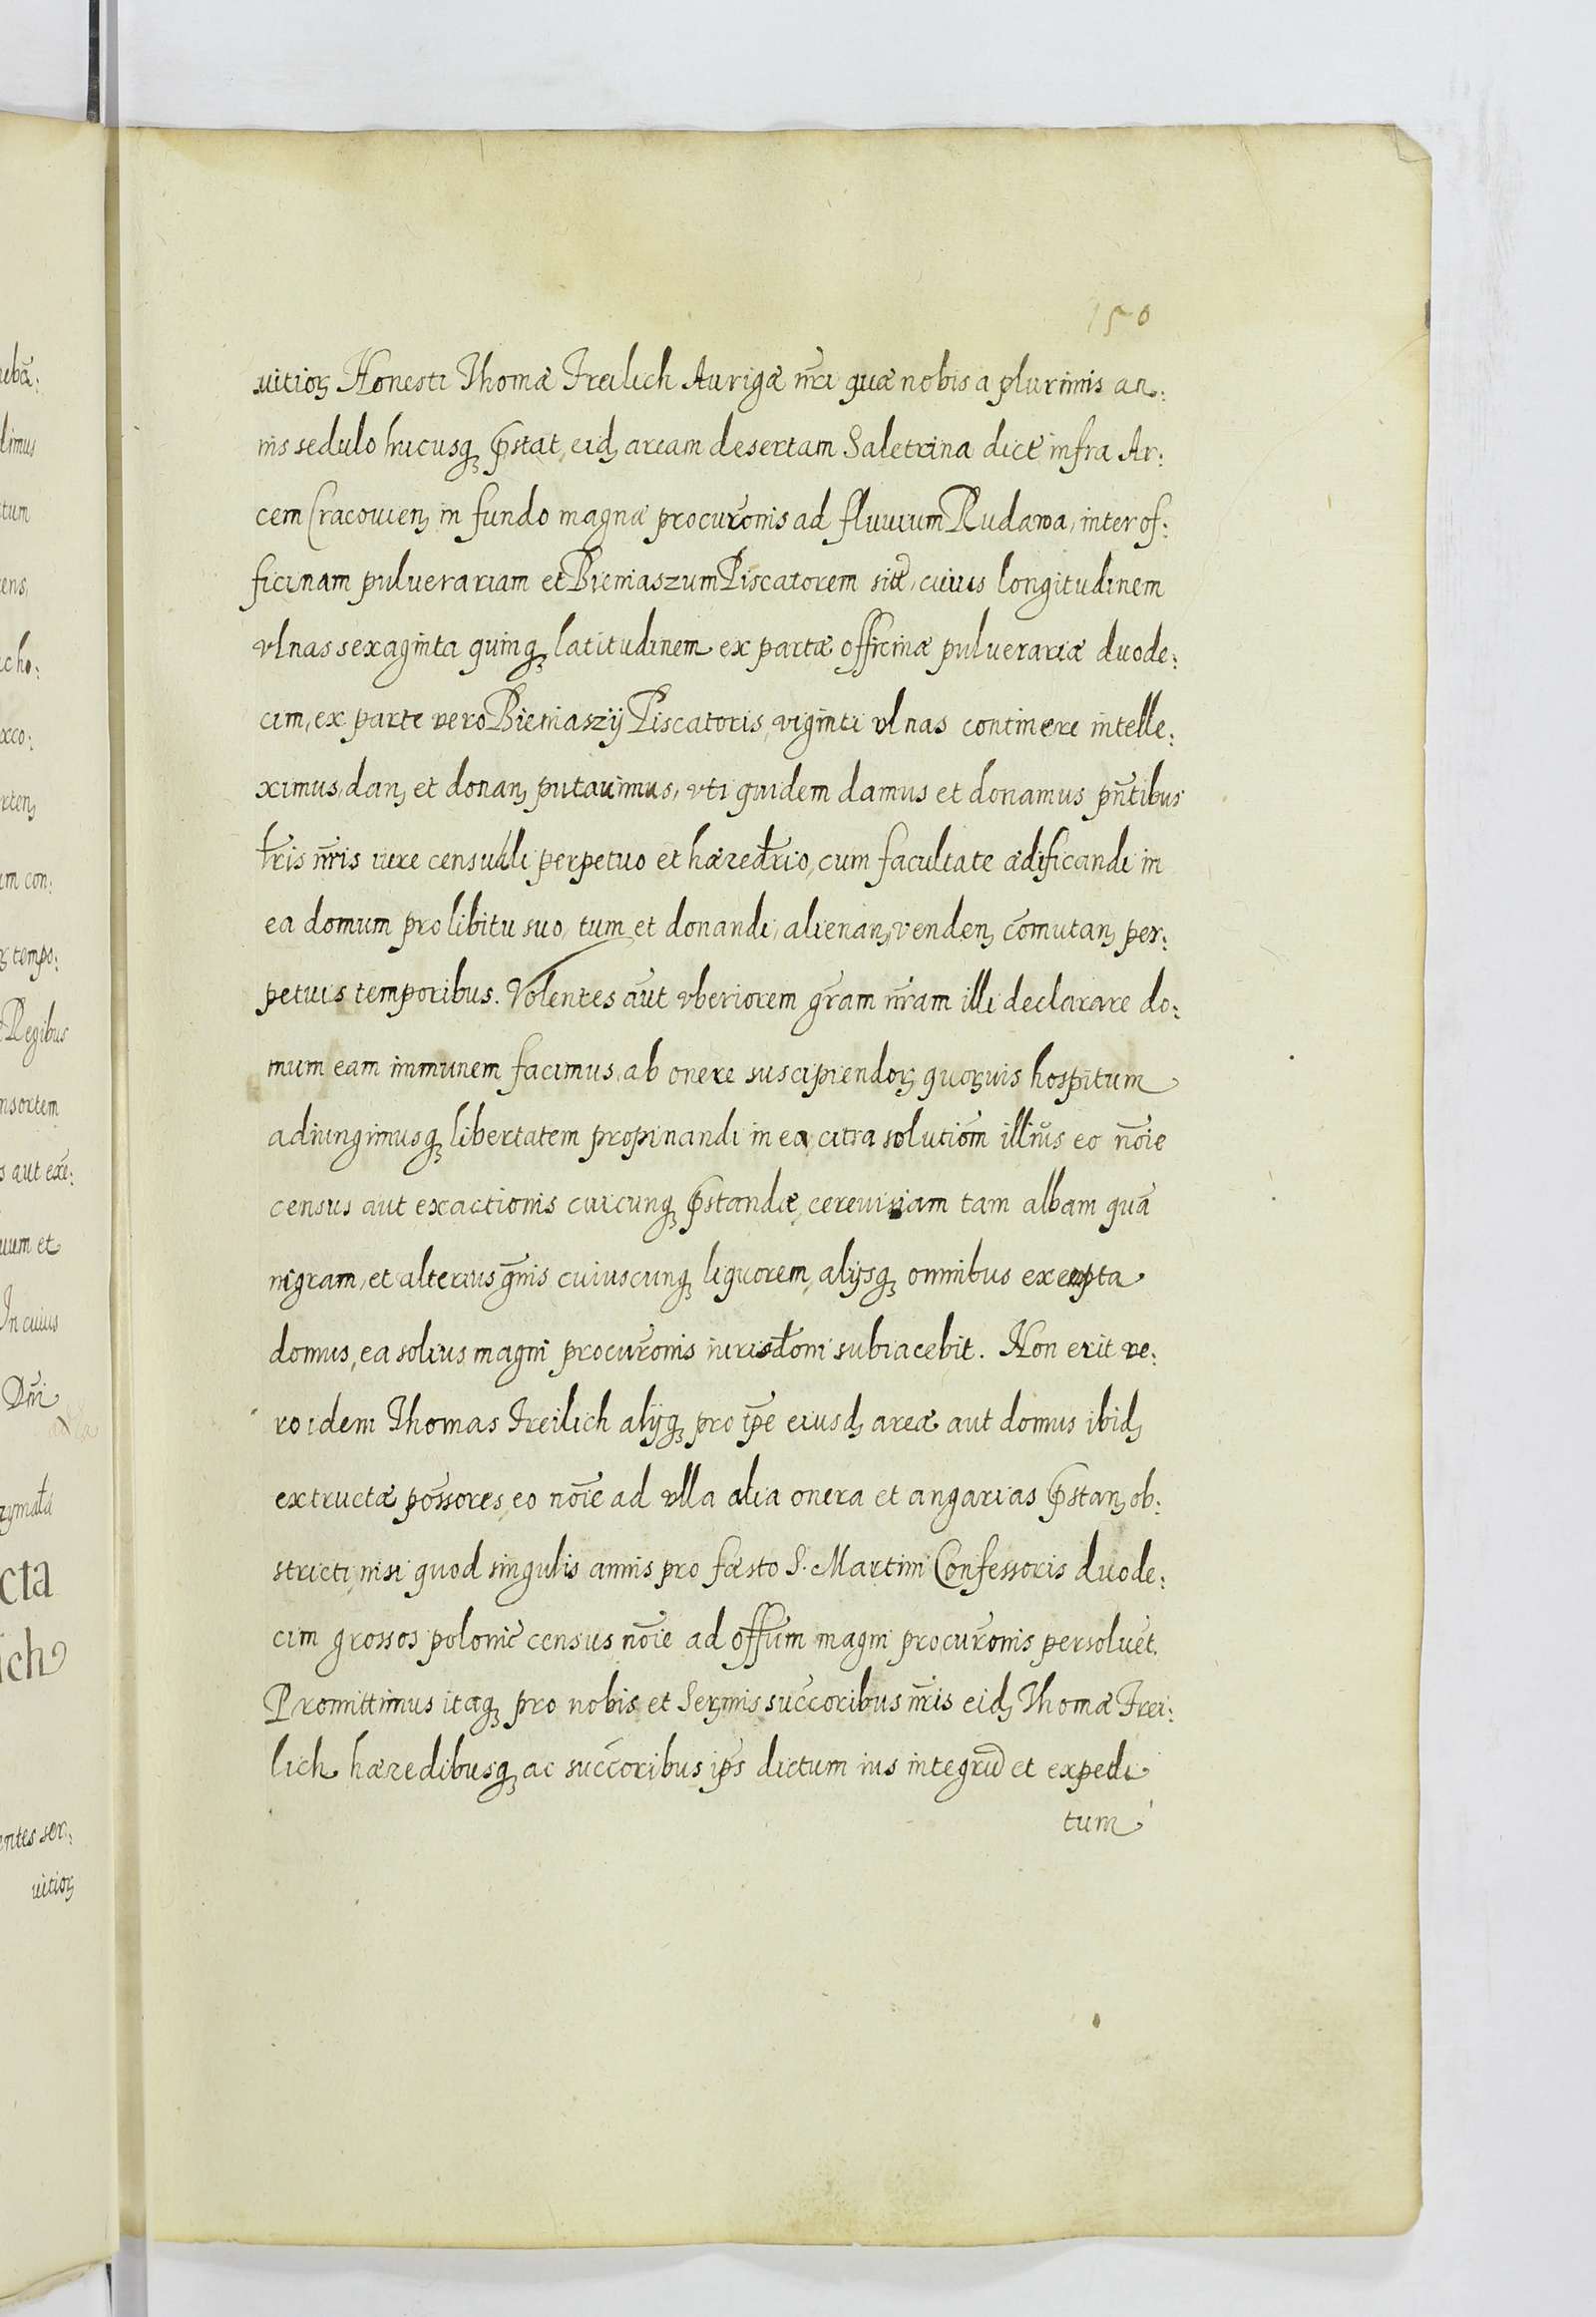 150
uitioꝝ Honesti Thomæ Freilich Aurigæ nr̃i quæ nobis a plurimis an:
nis sedulo hucusqꝫ p̃stat, eidꝫ aream desertam Saletrina dictẽ infra Ar:
cem Cracouienꝫ in fundo magnæ procurõnis ad fluuium Rudawa, inter of:
ficinam puluerariam et Bieniaszum Piscatorem sitẽ, cuius longitudinem
vlnas sexaginta quinqꝫ latitudinem ex partæ officinæ puluerariæ duode:
cim, ex parte vero Bieniaszij Piscatoris, viginti vlnas continere intelle:
ximus, danꝫ et donanꝫ putauimus, vti quidem damus et donamus pñtibus
lr̃is nr̃is iure censuali perpetuo et hæredr̃io, cum facultate ædificandi in
ea domum pro libitu suo, tum et donandi, alienanꝫ, vendenꝫ cõmutanꝫ per:
petuis temporibus. Volentes aũt vberiorem gr̃am nr̃am illi declarare do:
mum eam immunem facimus, ab onere suscipiendoꝝ quoꝝuis hospitum
adiungimusqꝫ libertatem propinandi in ea citra solutiõm illiũs eo nõie
census aut exactionis cuicunqꝫ p̃standæ, cereuisiam tam albam quã
nigram, et alterius gñis cuiuscunqꝫ liquorem, alijsqꝫ omnibus exempta
domus, ea solius magni procurõnis iurisdõni subiacebit. Non erit ve:
ro idem Thomas Freilich alijqꝫ pro tp̃e eiusdꝫ areæ aut domus ibidꝫ
extructæ põssores, eo nõie ad vlla alia onera et angarias p̃stanꝫ ob:
stricti, nisi quod singulis annis pro fæsto S. Martini Confessoris duode:
cim grossos polonic̃ census nõie ad offũm magni procurõnis persoluẽt.
Promittimus itaqꝫ pro nobis et Serꝫmis succ̃oribus nr̃is eidꝫ Thomæ Frei:
lich hæredibusqꝫ ac succ̃oribus ip̃s dictum ius integrũ et expedi
tum